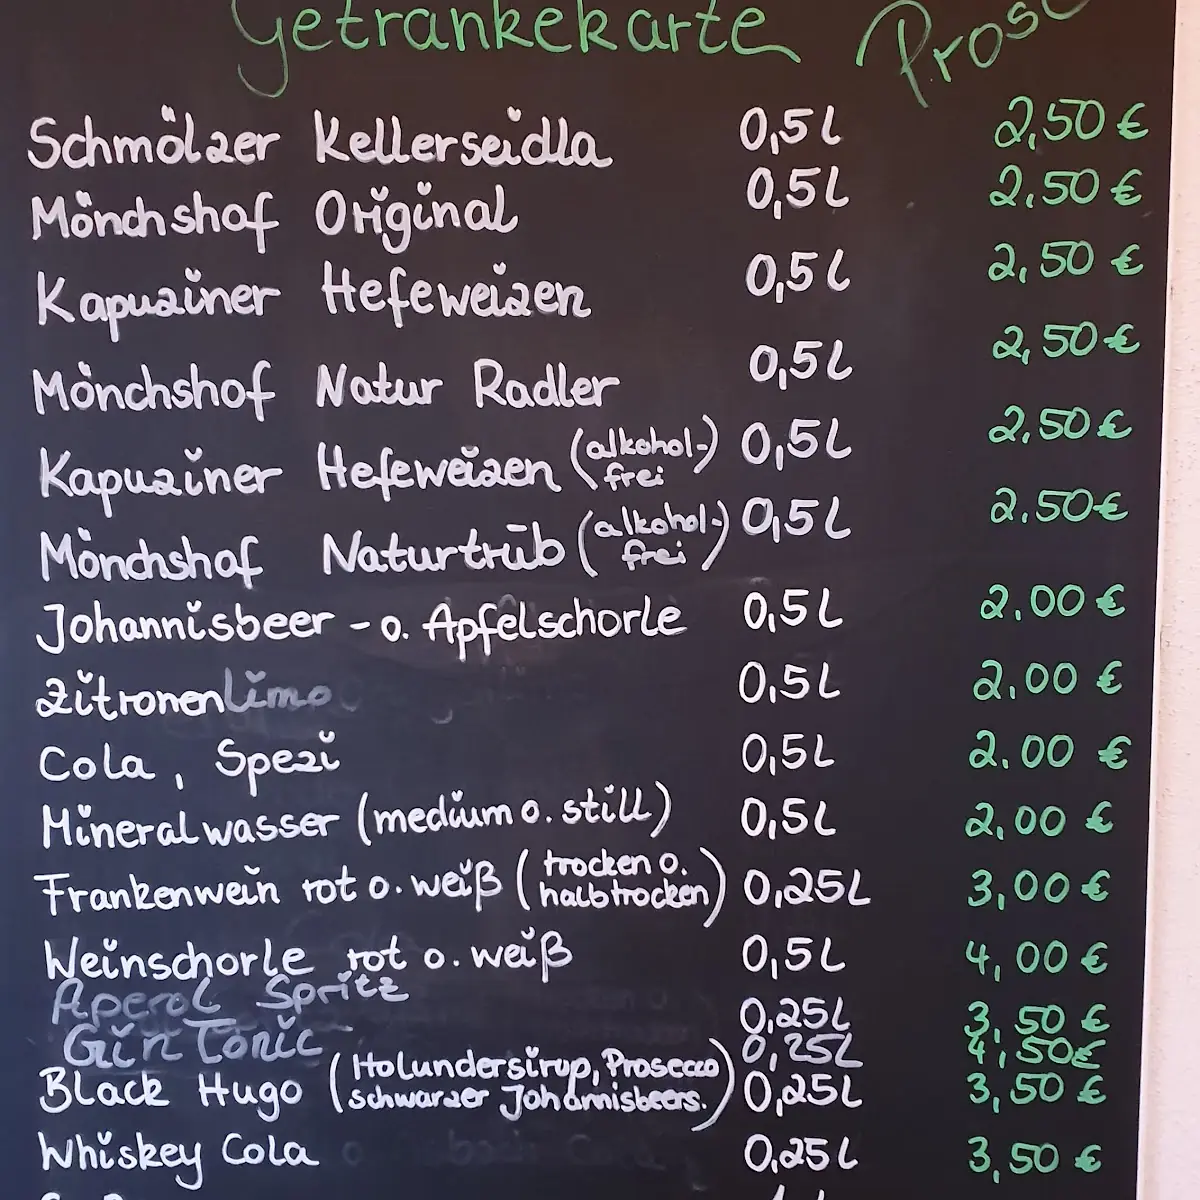 Getränkekarte Prost
Schmölzer Kellerseidla 0,5L 2,50 €
Mönchshof Original 0,5L 2.50 €
Kapuziner Hefeweizen 0,5L 2,50 €
Mönchshof Natur Radler 0,5L 2,50 €
Kapuziner Hefeweizen (alkohol-frei) 0,5L 2.50 €
Mönchshof Naturtrüb (alkohol-frei) 0,5L 2.50 €
Johannisbeer - o. Apfelschorle 0,5L 2.00 €
Zitronenlimo 0,5L 2.00 €
Cola, Spezi 0,5L 2.00 €
Mineralwasser (medium o. still) 0,5L 2,00 €
Frankenwein rot o. weiß (trocken o. halbtrocken) 0,25L 3,00 €
Weinschorle rot o. weiß 0,5L 4,00 €
Aperol Spritz 0,25L 3,50 €
Gin Tonic 0,25L 4,50€
Black Hugo (Holundersirup, Prosecco schwarzer Johannisbeers.) 0,25L 3,50 €
Whiskey Cola 0,25L 3,50 €